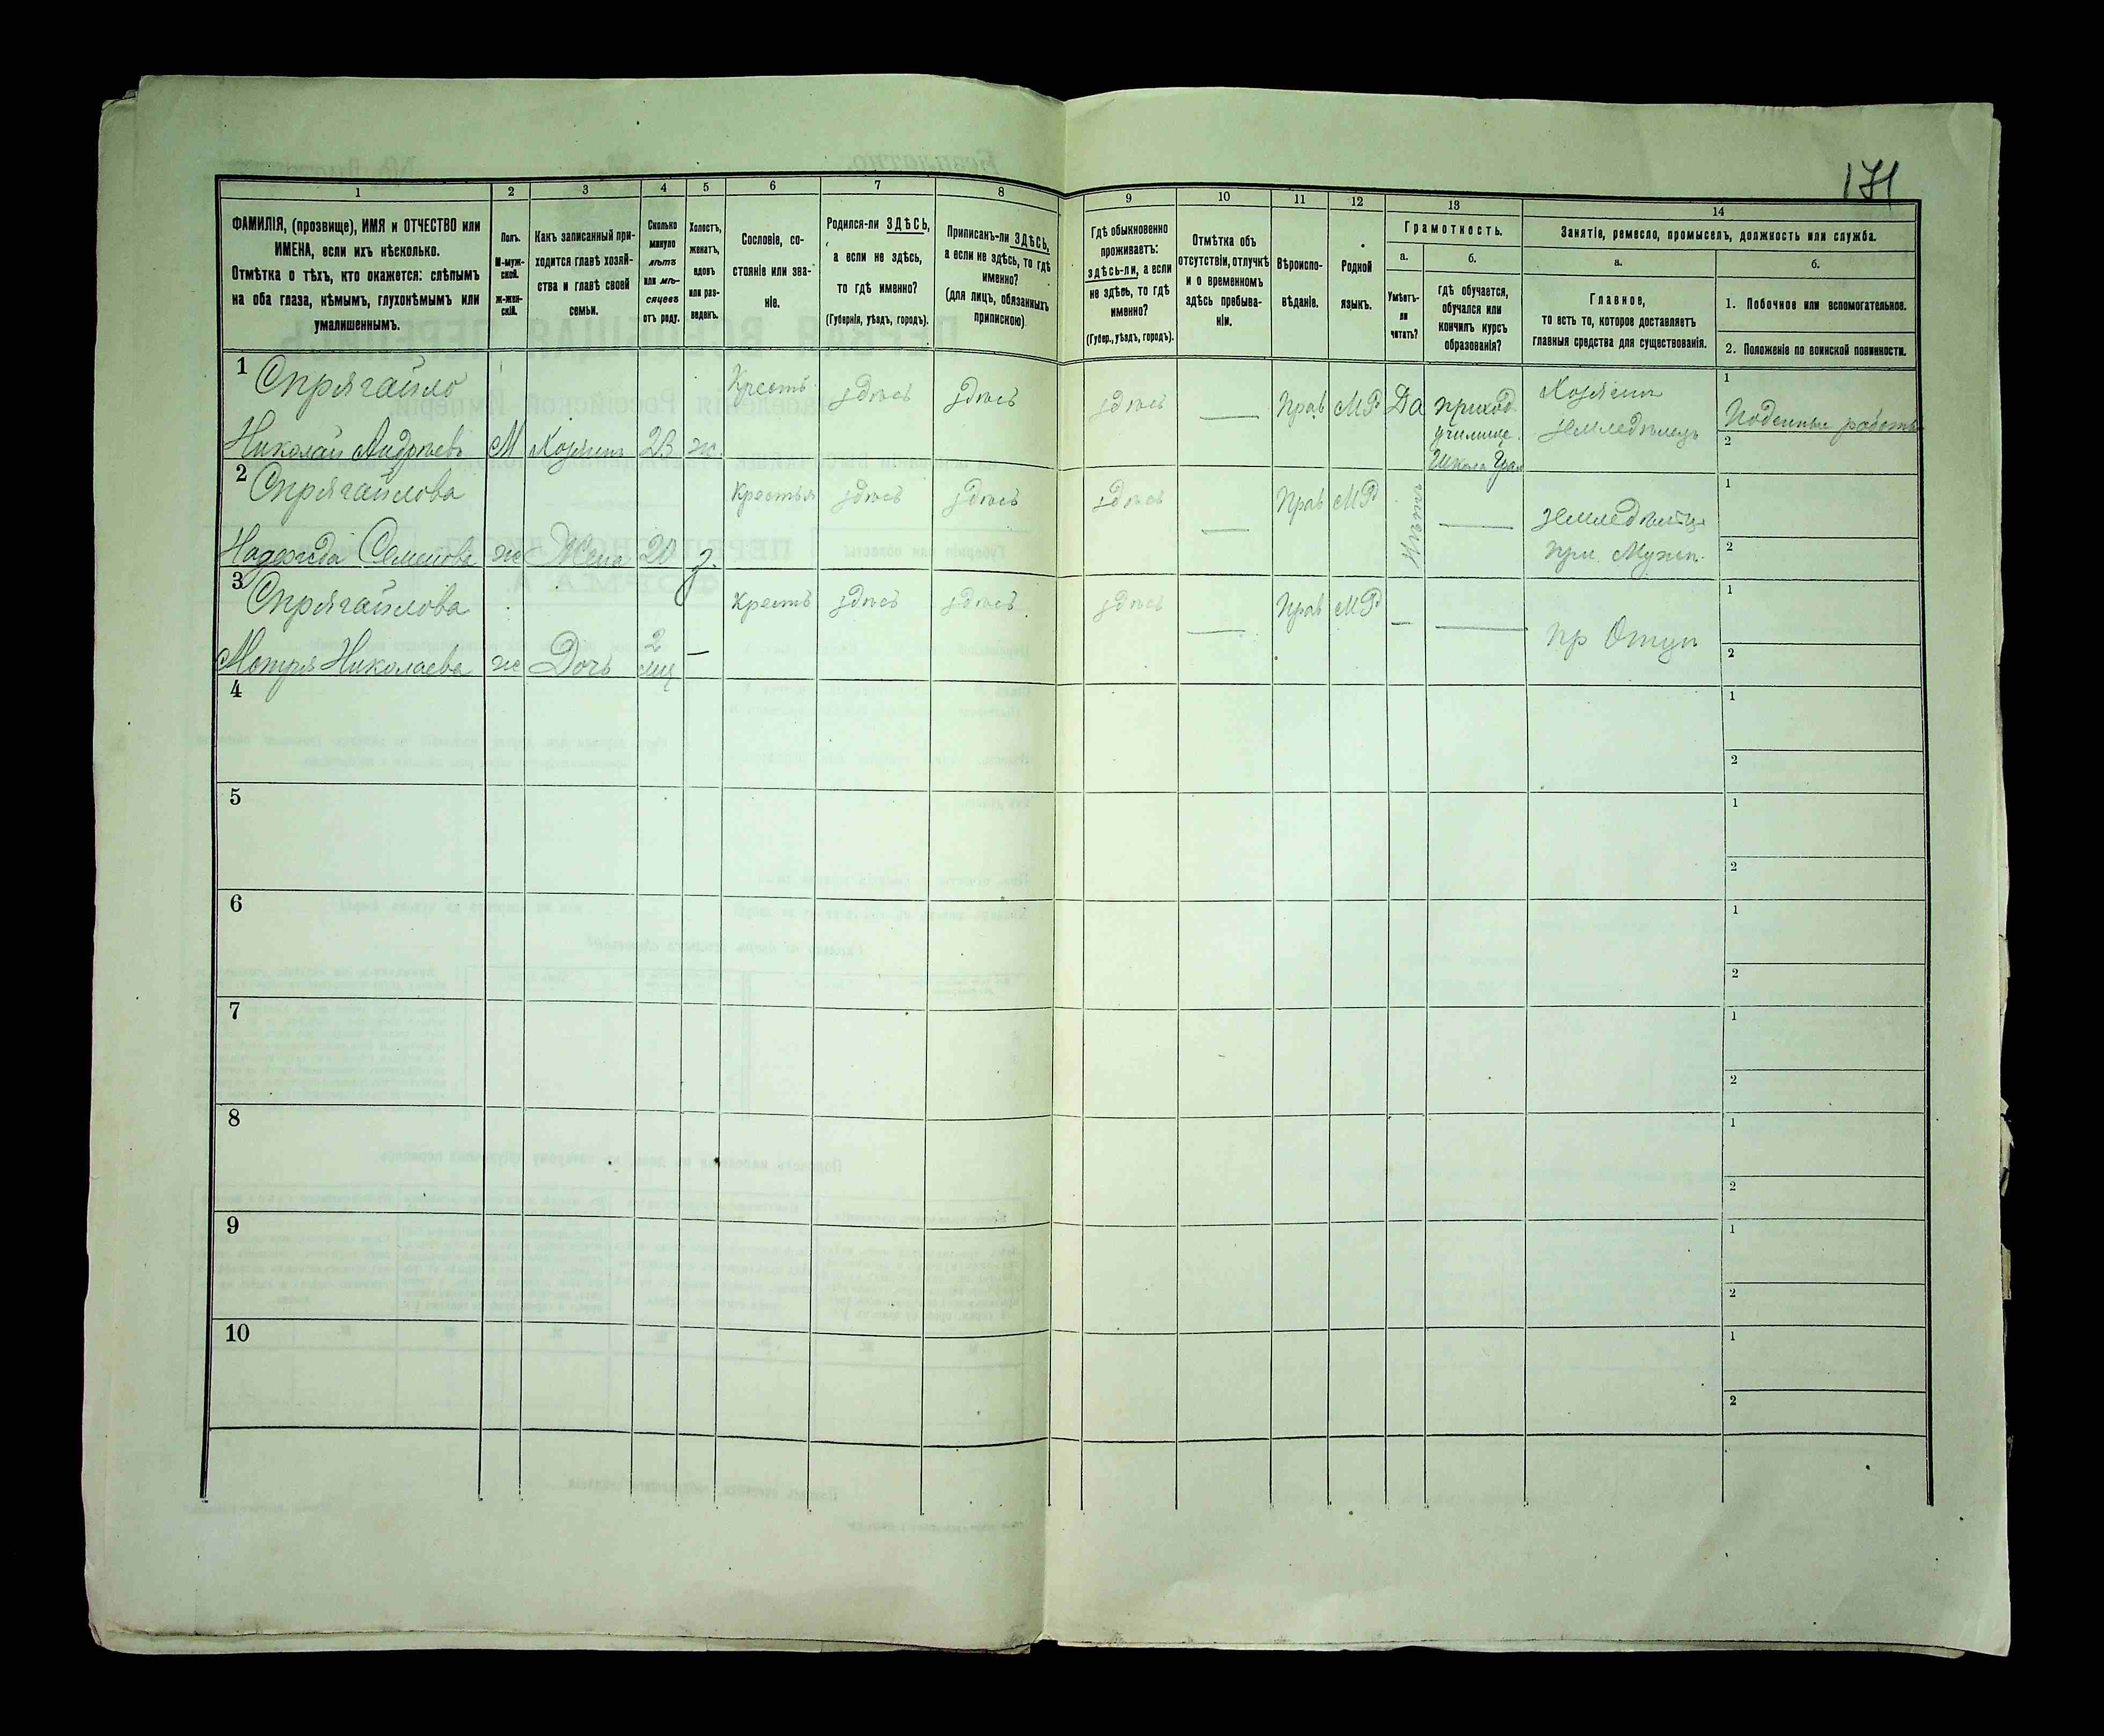 171
1 2 3 4 5 6 7 8 9 10 11 12 13 14
ФАМИЛІЯ, (прозвище), ИМЯ и ОТЧЕСТВО или
ИМЕНА, если ихъ нѣсколько.
Отмѣтка о тѣхъ, кто окажется: слѣпымъ
на оба глаза, нѣмымъ, глухонѣмымъ или
умалишеннымъ.
Полъ.
М-муж-
ской.
ж-жен-
скій.
Какъ записанный при-
ходится главѣ хозяй-
ства и главѣ своей
семьи.
Сколько
минуло
лѣтъ
или мѣ-
сяцевъ
отъ роду.
Холостъ,
женатъ,
вдовъ
или раз-
веденъ.
Сословіе, со-
стояніе или зва-
ніе.
Родился-ли ЗДѢСЬ,
а если не здѣсь,
то гдѣ именно?
(Губернія, уѣздъ, городъ).
Приписанъ-ли ЗДѢСЬ,
а если не здѣсь, то гдѣ
именно?
(для лицъ, обязанныхъ
припискою)
Гдѣ обыкновенно
проживаетъ:
здѣсь-ли, а если
не здѣсь, то гдѣ
именно?
(Губер., уѣздъ, городъ).
Отмѣтка объ
отсутствіи, отлучкѣ
и о временномъ
здѣсь пребыва-
ніи.
Вѣроиспо-
вѣданіе.
Родной
языкъ.
Грамотность.
а.
Умѣетъ-
ли
читать?
б.
гдѣ обучается,
обучался или
кончилъ курсъ
образованія?
Занятіе, ремесло, промыселъ, должность или служба.
а.
Главное,
то есть то, которое доставляетъ
главныя средства для существованія.
б.
1. Побочное или вспомогательное.
2. Положеніе по воинской повинности.
1 Спрягайло Крестъ здѣсь здѣсь здѣсь — Прав МР Да приход. Хозяинъ 1
училище. земледѣлецъ Поденные работы
Николай Андреевъ М Хозяинъ 23 ж. Школа 2
2 Спрягайлова Крестья здѣсь здѣсь здѣсь — Прав МР — 1
Надежда Семенова ж Жена 20 з. при Мужѣ. 2
3 Спрягайлова Крестъ здѣсь здѣсь здѣсь — Прав МР — — пр Отцу 1
Мотря Николаева ж Дочь 2 мц — 2
4 1
2
5 1
2
6 1
2
7 1
2
8 1
2
9 1
2
10 1
2